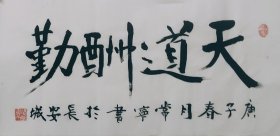 天道酬勤
庚子春月常寧書於長安城